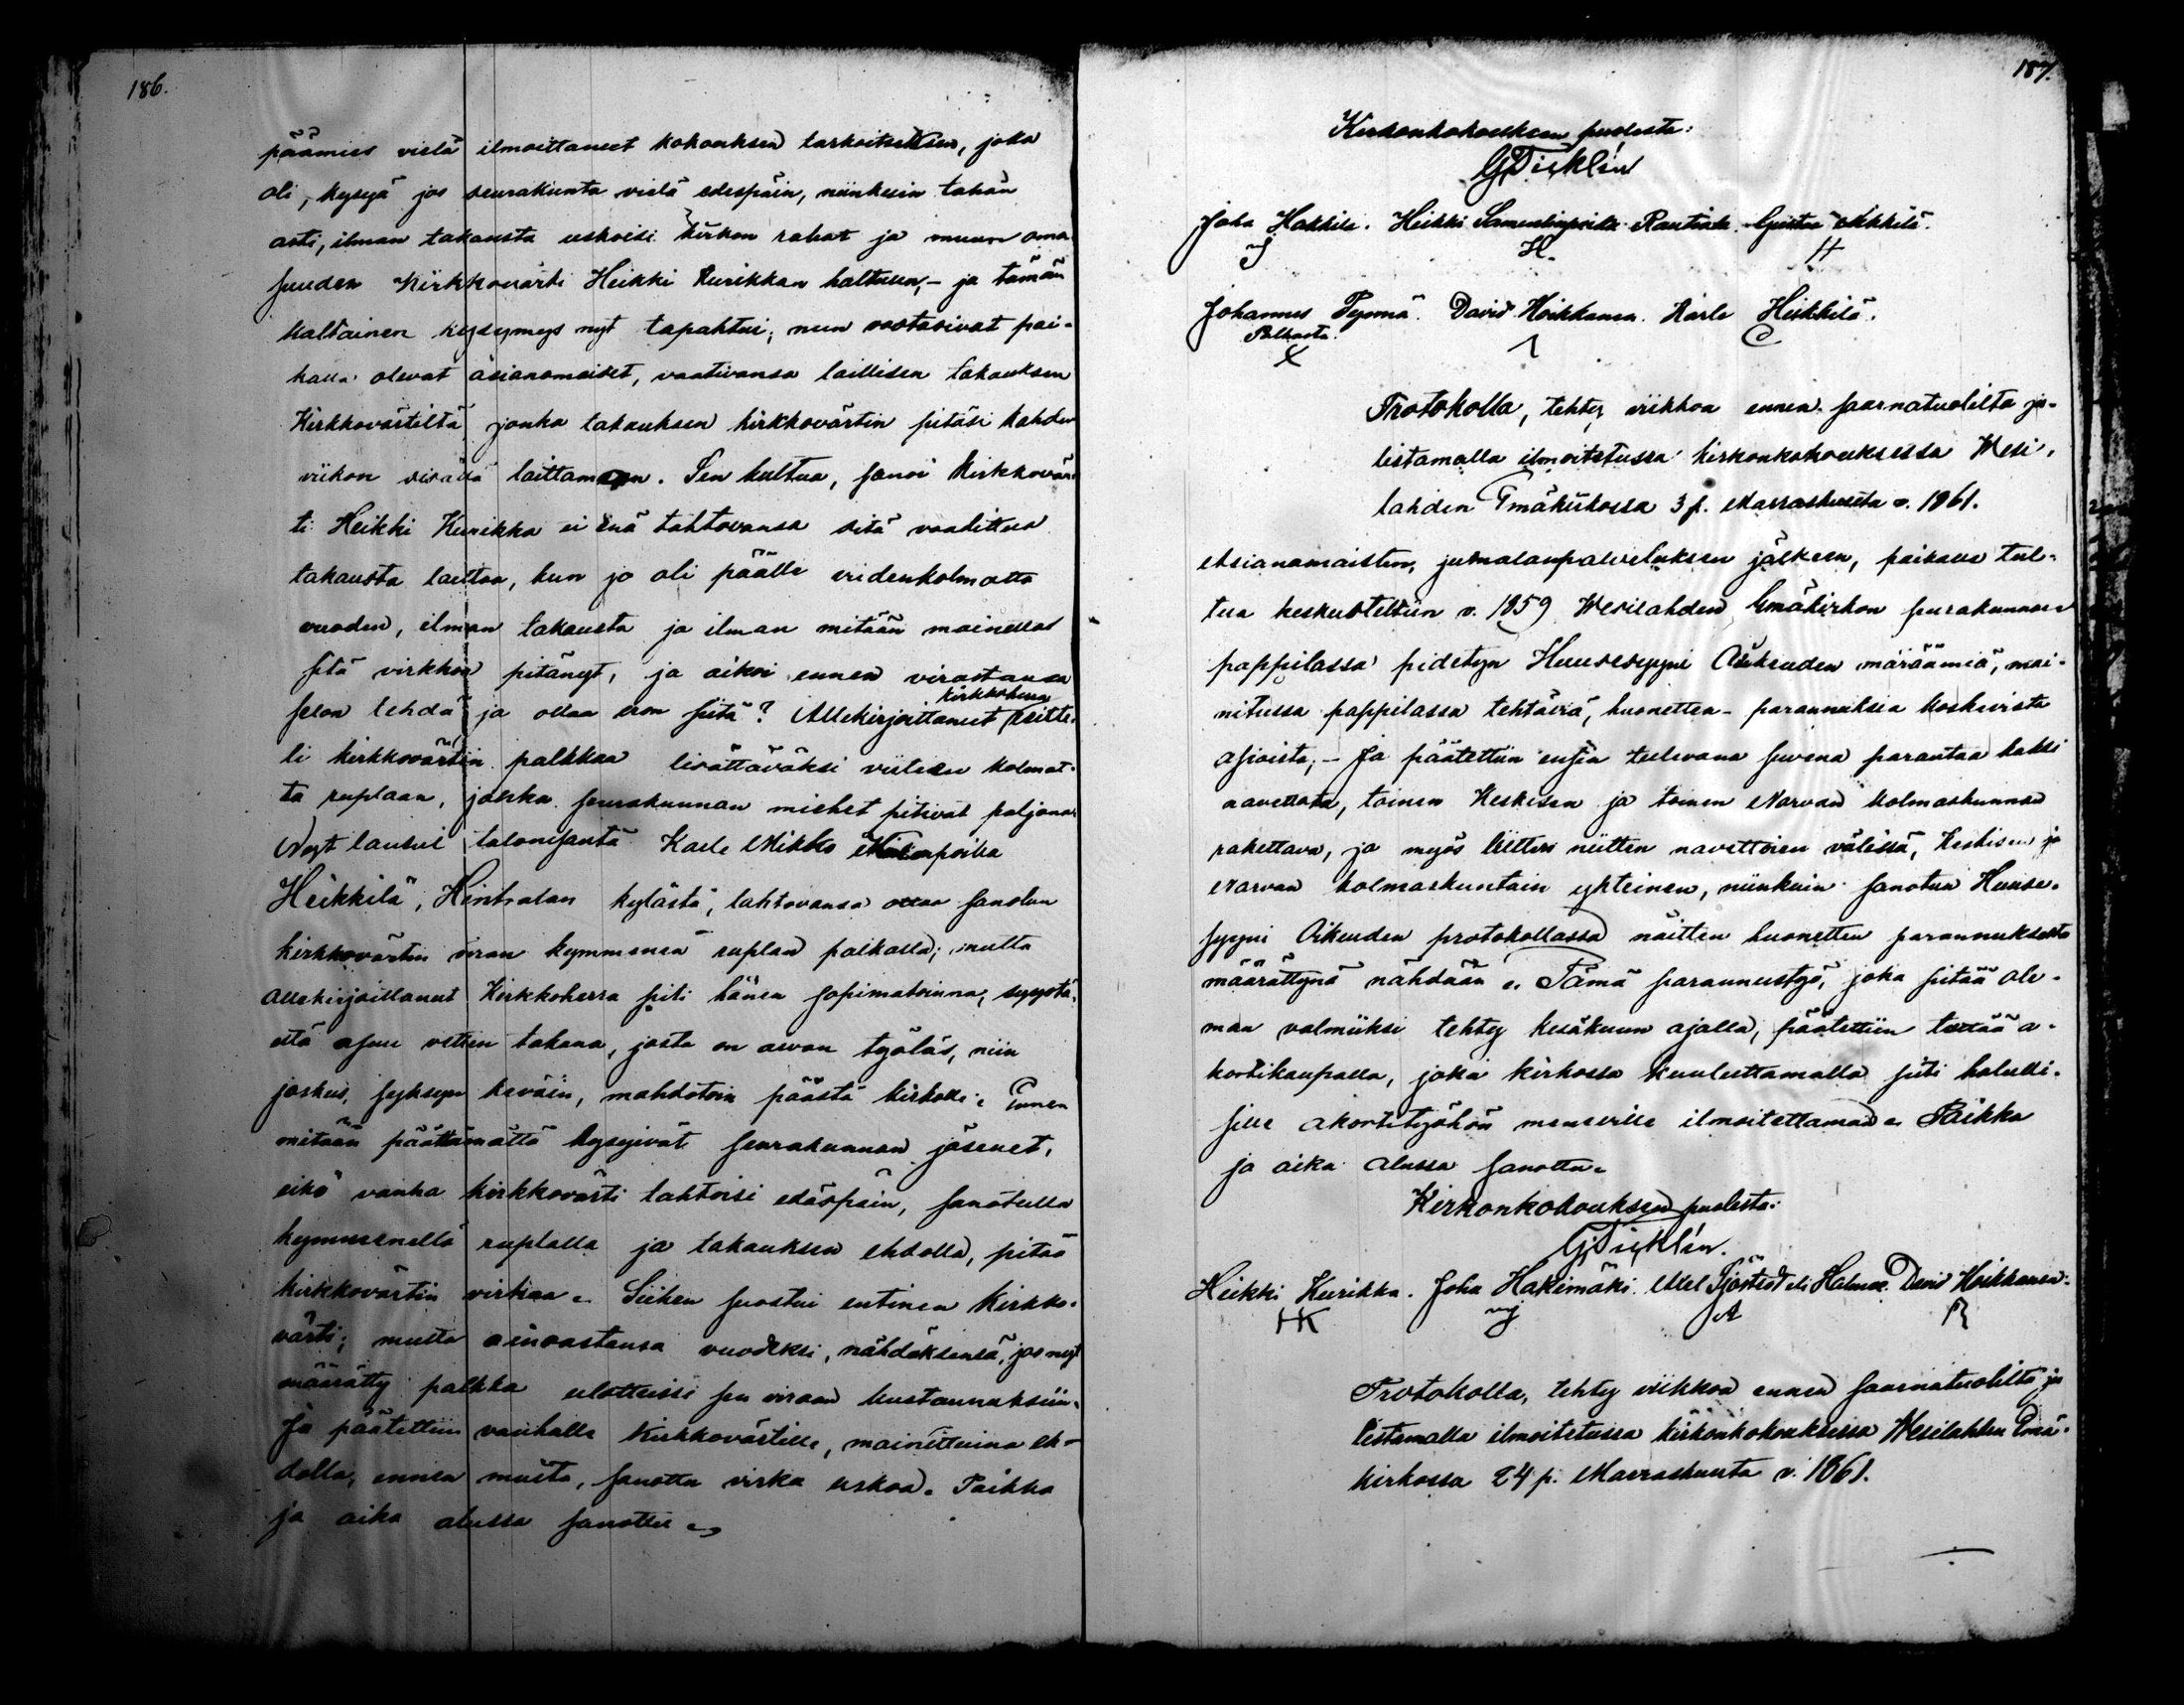 186.
päämies vielä ilmoittanut kokouksen tarkoituksen, joka
oli, kysyä jos seurakunta vielä edespäin, niinkuin tähän
asti, ilman takausta uskoisi kirkon rahat ja muun oma-
suuden Kirkkovärti Heikki Kurikkan haltuun, – ja tämän
kaltainen kysymys nyt tapahtui; niin vastasivat pai-
kalla olevat asianomaiset, vaativansa laillisen takauksen
Kirkkovärtiltä jonka takauksen kirkkovärtin pitäsi kahden
viikon sisällä laittaman. Sen kultua, sanoi Kirkkovär-
ti Heikki Kurikka ei enä tahtovansa sitä vaadittua
takausta laittaa, kun jo oli päälle viidenkolmatta
vuoden, ilman takausta ja ilman mitään mainetta
sitä virkkaa pitänyt, ja aikoi ennen virastansa
kirkkoherra
selon tehdä ja ollaa eron siitä? Allekirjoittanut esitte-
li kirkkovärtiin palkkaa lisättäväksi viiteen kolmat-
ta ruplaan, jonka seurakunnan miehet pitivät paljona.
Nyt lausui talonisäntä Kaele Mikko poika
Heikkilä, Hinsalan kylästä, tahtovansa ottaa sanotun
kirkkovärtin viran kymmenen ruplan palkalla; mutta
Allekirjoittanut Kirkkoherra piti hänen sopimatoinna, syystä,
että asuu vetten takana, josta on aivan työläs, niin
joskus, syksyn keväin, mahdotoin päästä kirkolle. Ennen
mitään päättämättä kysyivät seurakunnan jäsenet,
eikö vanha kirkkovärti tahtoisi edäspäin, sanotulla
kymmenellä ruplalla ja takauksen ehdolla, pitää
kirkkovärtin virkaa. Siihen suostui entinen Kirkko-
värti; mutta ainoastansa vuodeksi, nähdäksensä, jos nyt
määrätty palkka ulottuissi sen viraan kustannuksiin.
Ja päätettiin vanhalle Kirkkovärtille, mainittuina eh-
dolla, ennen muita, sanottu virka uskoa. Paikka
ja aika alussa sanottu.
187.
Kirkonkokouksen puolesta:
G Dicklén
Juha Hakkila. Heikki Rautiala. Gustaa Mikkilä.
J H. H
Johannes Tynnä. David Heikkanen. Kaarle Heikkilä.
Palhosta.
Protokolla, tehty viikkoa ennen saarnatuolilta ju-
listamalla ilmoitetussa kirkonkokouksessa Wesi-
lahden Emäkirkossa 3 p. Marraskuuta v. 1861.
Asianomaisten, jumalanpalveluksen jälkeen, paikana tul-
tua keskusteltiin v. 1859 Wesilahden Emäkirkon seurakunnan
pappilassa pidetyn Huusesyyni Oikeuden määräämiä, mai-
nitussa pappilassa tehtäviä, huonetten- parannuksia koskevista
asioista; – Ja päätettiin ensin tulevana suvena parantaa kaksi
navettata, toinen Keskisen ja toinen Narvan kolmaskunnan
rakettava, ja myös niitten navettoien välissä, Keskisen ja
Narvan kolmaskuntain yhteinen, niinkuin sanotun Huuse-
syyni Oikeuden protokollassa näitten huonetten parannuksesta
määrättynä nähdään. Tämä parannustyö, joka pitää ole-
man valmiiksi tehty kesäkuun ajalla, päätettiin tettää a-
kortikaupalla, joka kirkossa kuuluttamalla piti halulli-
sille akortityöhön meneville ilmoitettaman. Paikka
ja aika alussa sanottu.
Kirkonkokouksen puolesta:
G Dicklén.
Heikki Kurikka. Juha Hakimäki. Axel Sjöstedt eli Halme. David Heikkanen.
HK A
Protokolla, tehty viikkoa ennen saarnatuolilta ju
listamalla ilmoitetussa kirkonkokouksessa Wesilahden Emä-
kirkossa 24 p. Marraskuuta v. 1861.